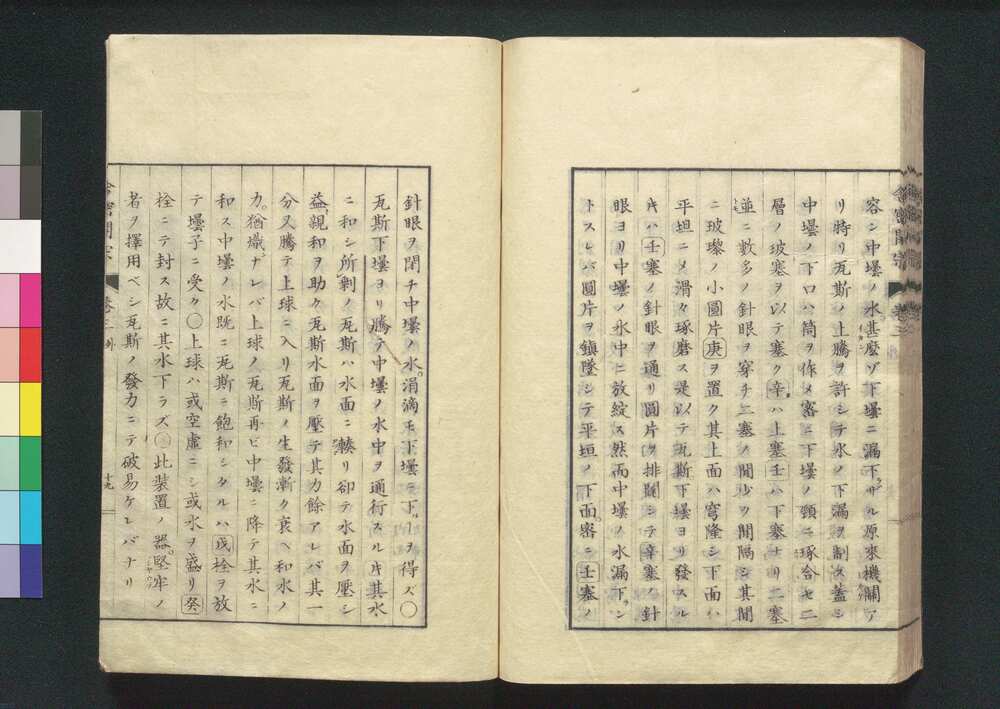 容シ中壜ノ水甚麼ゾ下壜ニ漏下セザル原來機關ア
リ時リ瓦斯ノ上騰ヲ許シテ水ノ下漏ヲ制ス蓋シ
中壜ノ下口ハ筒ヲ作メ審ニ下壜ノ頸ニ琢合セ二
層ノ玻塞ヲ以テ塞ク辛ハ上塞壬ハ下塞ナリ二塞
並ニ數多ノ針眼ヲ穿チ二塞ノ間少ク間隔シ其間
ニ玻瓈ノ小圓片庚ヲ置ク其上面ハ穹隆シ下面ハ
平坦ニメ滑々琢磨ス是以テ瓦斯下壜ヨリ發スル
片ハ壬塞ノ針眼ヲ通リ圓片ヲ排闢シテ辛塞ノ針
眼ヨリ中壜ノ水中ニ放綻ス然而中壜ノ水漏下シ
トスレバ圓片ヲ鎮墜シテ平垣ノ下面密ニ壬塞ノ
針眼ヲ閉チ中壜ノ水涓滴モ下壜ニ下ルヲ得ズ〇
瓦斯下壜ヨリ騰テ中壜ノ水中ヲ通行スル片其水
ニ和シ所剰ノ瓦斯ハ水面ニ輳リ卻テ水面ヲ壓シ
益親和ヲ助ク瓦斯水面ヲ壓テ其力餘アレバ其一
分又騰テ上球ニ入リ瓦斯ノ生發漸ク衰ヘ和水ノ
力猶熾ナレバ上球ノ瓦斯再ビ中壜ニ降テ其水ニ
和ス中壜ノ水既ニ瓦斯ニ飽和シタルハ戊栓ヲ放
テ壜子ニ受ク〇上球ハ或空虛ニシ或水ヲ盛リ癸
栓ニテ封ス故ニ其水下ラズ〇此裝置ノ器堅牢ノ
者ヲ擇用ベシ瓦斯ノ發力ニテ破易ケレバナリ
十九